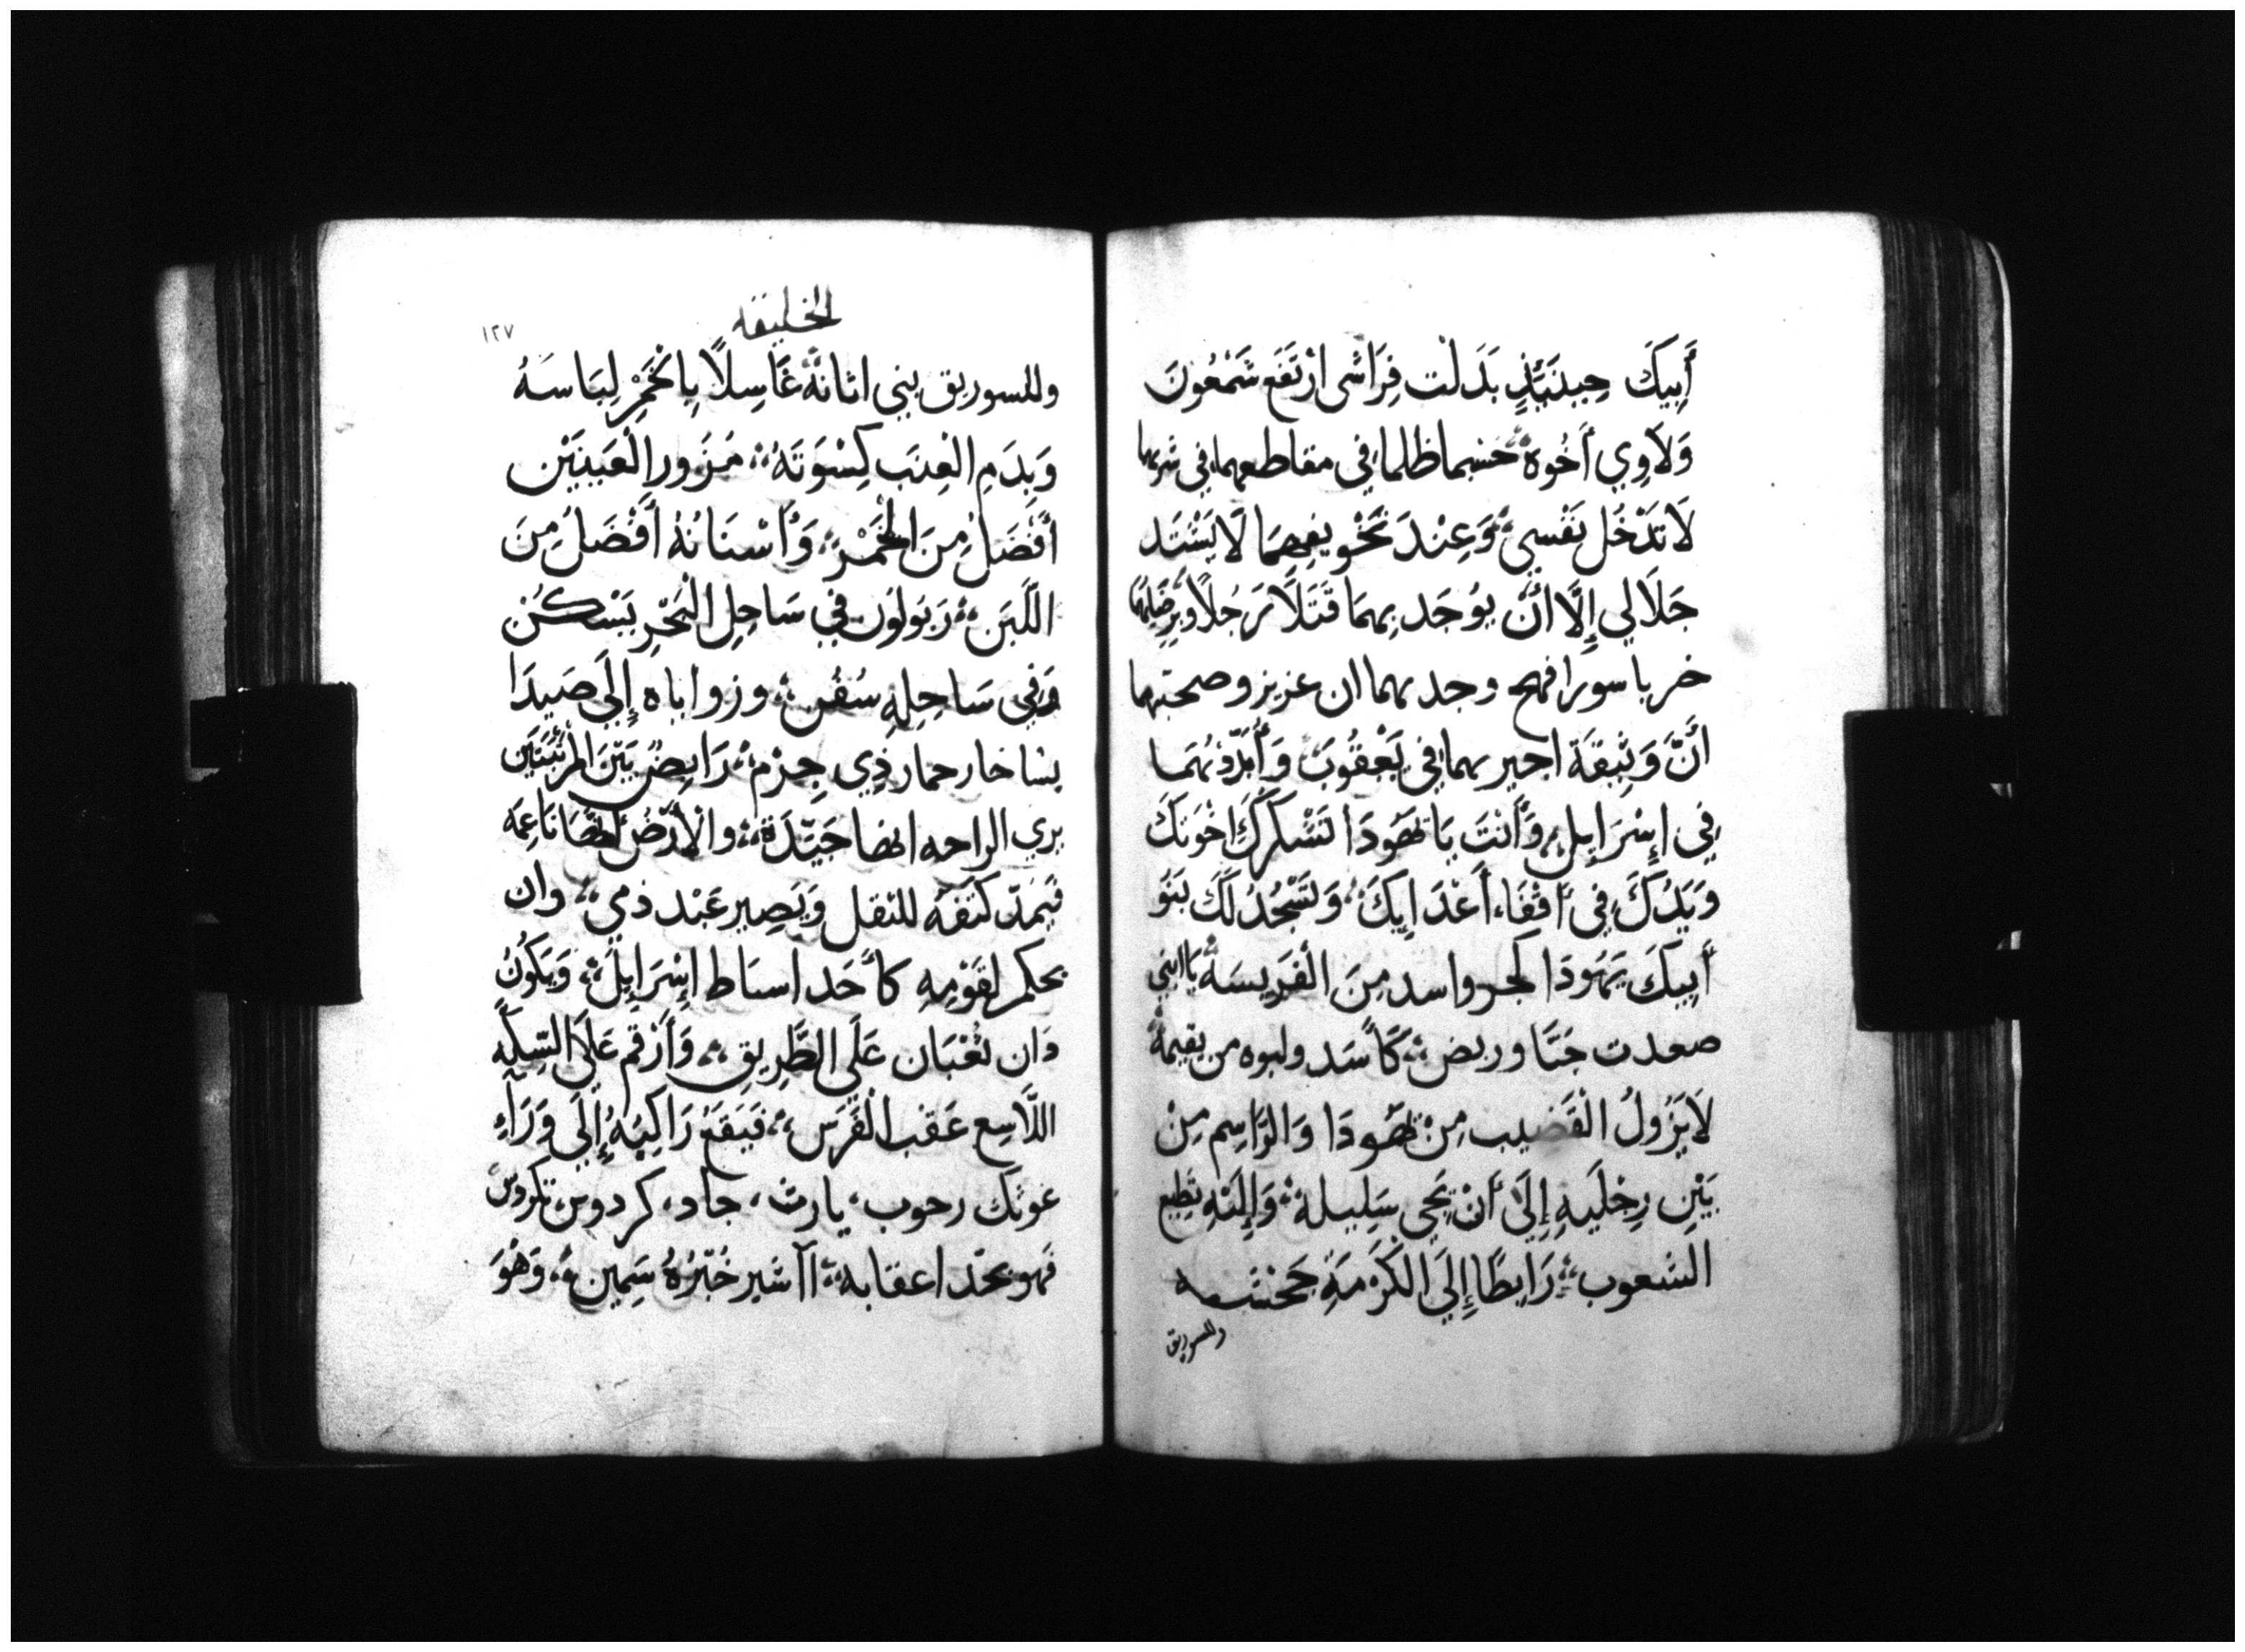 أَبِيكَ حِينَئِذٍ بَدَلْت فِرَاشى ازْتَفَع شَمْعُونَ
وَلَاوِي أَخُوهُ خسما ظالما في مقاطعهما في شربهما
لَا تَدْخُل نَفْسي وَعِنْدَ تَخْويفِهِمَا لَا يَشْتَد
جَلَالي إِلَّا أَنْ يُوجَد بِهِمَا قَتَلَا رَجُلًا
خربا سورا فهج وجد بهما ان عزيز وصحبتهما
أَنَّ وَثِيقَة اجير بهما في يَعْقُوبَ وَأُبَدّدُهُمَا
في إِسْرَايِل وَأَنتَ يَا يَهَوُدَا تَشْكُرَكَ اخْوَتكَ
وَيَدُكَ فِي أَقْفَاء أَعْدَايِكَ وَتَسْجُدُ لَكَ بَنُو
أَبِيكَ يَهَودَا كجرو اسد مِنَ الْفَرِيسَة يَا ابني
صعدت جَثَا وربض كَأَسَد ولبوه من يقيمهُ
لَا يَزُولُ الْقَضيب مِنْ يَهَودَا وَالرَّاسِم مِنْ
بَيْنِ رِجْلَيهِ إِلَى أَنْ يَجِي سَلِيله وَإِلَيْهِ تطيع
الشعوب رَابِطًا إِلَى الكَرْمَةِ جَحْشه
وللسوريق
الخليقه
١٢٧
وللسوريق بني اتانهُ غَاسِلًا بِالخَمْرِ لِبَاسَهُ
وَبِدَمِ الْعِنَب كِسْوَتَهُ مُزَوَر الْعَيْنَيْن
أَفْضَلُ مِنَ الخَمْر وَأَسْنَانُهُ أَفْضَلُ مِنَ
اللَّبَن زَبَولوُن في سَاحِلِ الْبَحْرِ يَسْكُن
وَفِي سَاحِلِهِ سُفُن وزواياه إِلَى صَيدَا
يساخار حمار ذِي جِرْم رَابِضُ بَيْنَ المَرْتَبَتَين
يري الراحه انها جَيّدَة والْأَرْضُ انهَا نَاعِمَه
فَيَمدّ كتفهُ للثقل وَيَصِير عَبْد ذمي وان
يحكم لقَوْمِهِ كأَحَد اسباط إِسْرَايِل وَيَكُونُ
دَان ثُعْبَان عَلَي الطَّرِيقِ وَأَرْقم عَلَى السّكَّهِ
اللَّاسِع عَقب الْفَرَس فَيَقَعُ رَاكِبُهُ إِلَى وَرَآءِ
غوثك رحوب يارث جاد كردوس تكردوس
فهو يحد اعقابه آاشير خُبْزُهُ سَمِين وَهُوَ